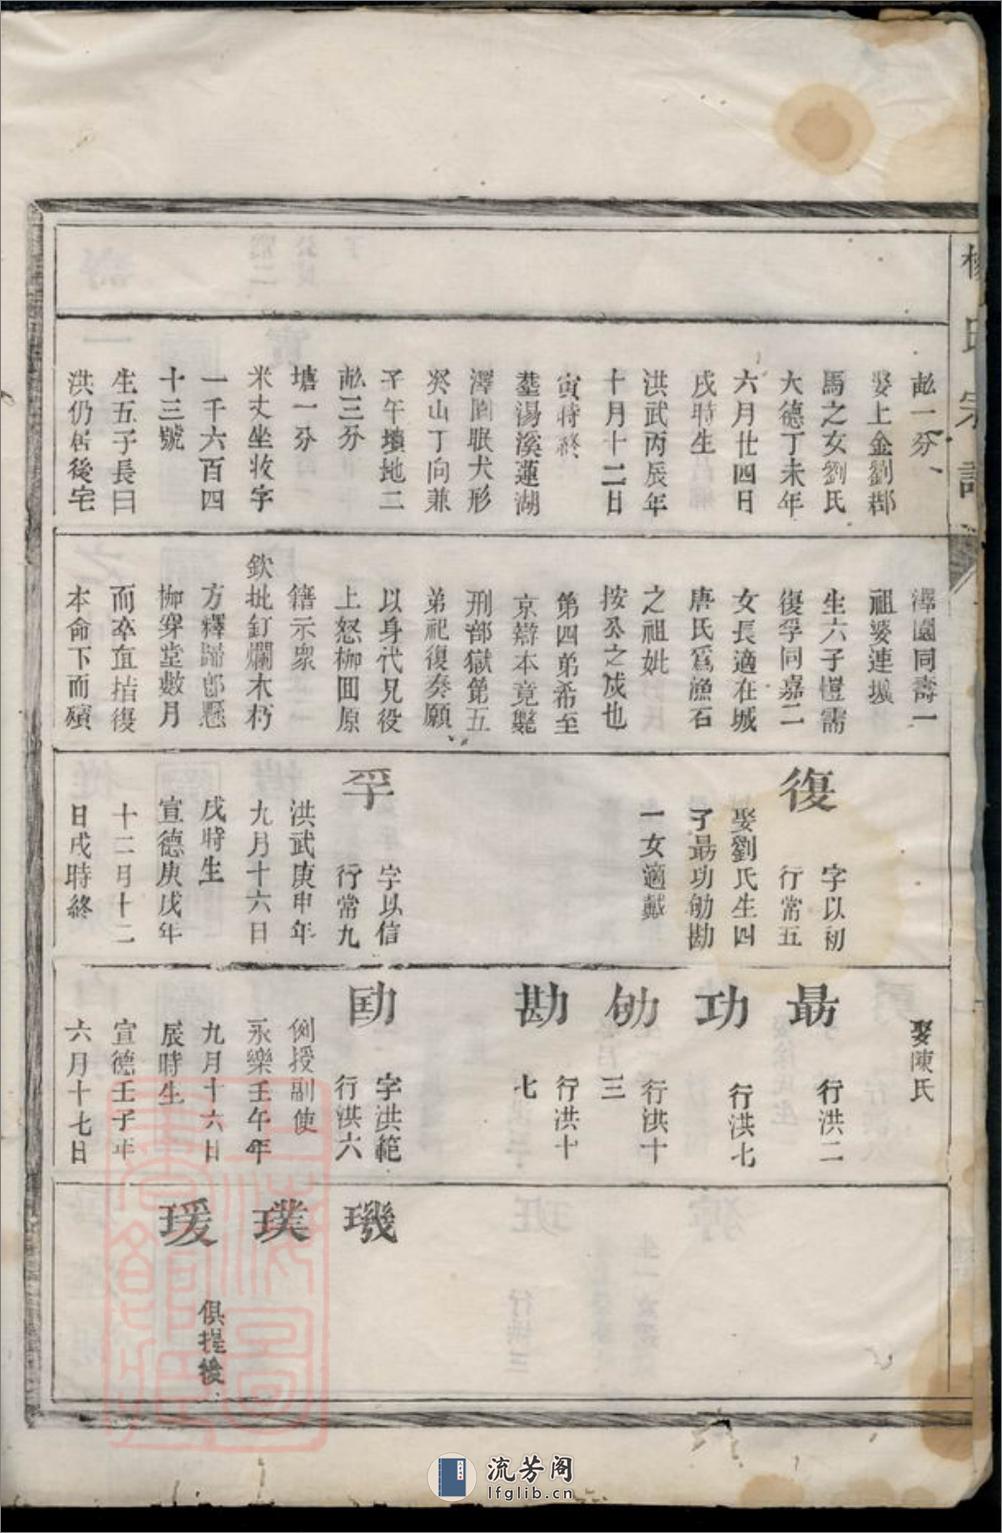 楊氏宗譜
畝一分
娶上金劉郡
馬之女劉氏
大德丁未年
六月廿四日
戌時生
洪武丙辰年
十月十二日
寅時終
塟湯溪蓮湖
澤園眠犬形
癸山丁向兼
子午墳地二
畝三分
塘一分
米丈坐收字
一千六百四
十三號
生五子長曰
洪仍居後宅
澤園同壽一
祖婆連壙
生六子愷需
復孚同嘉二
女長適在城
唐氏爲漁石
之祖妣
按公之戍也
第四弟希至
京辯本竟斃
刑部獄第五
弟祀復奏願
以身代兄役
上怒枷囬原
籍示衆
欽批釘爛木朽
方釋歸郎懸
枷穿堂數月
而卒宜拮復
本命下而殯
復
字以初
行常五
娶劉氏生四
子勗功勄勘
一女適戴
孚
字以信
行常九
洪武庚申年
九月十六日
戌時生
宣德庚戌年
十二月十二
日戌時終
娶陳氏
勗
行洪二
功
行洪七
勄
行洪十
三
勘
行洪十
七
字洪範
行洪六
例授副使
永樂壬午年
九月十六日
辰時生
宣德壬子年
六月十七日
璣
璞
瑗
俱提後
流芳阁
lfglib.cn